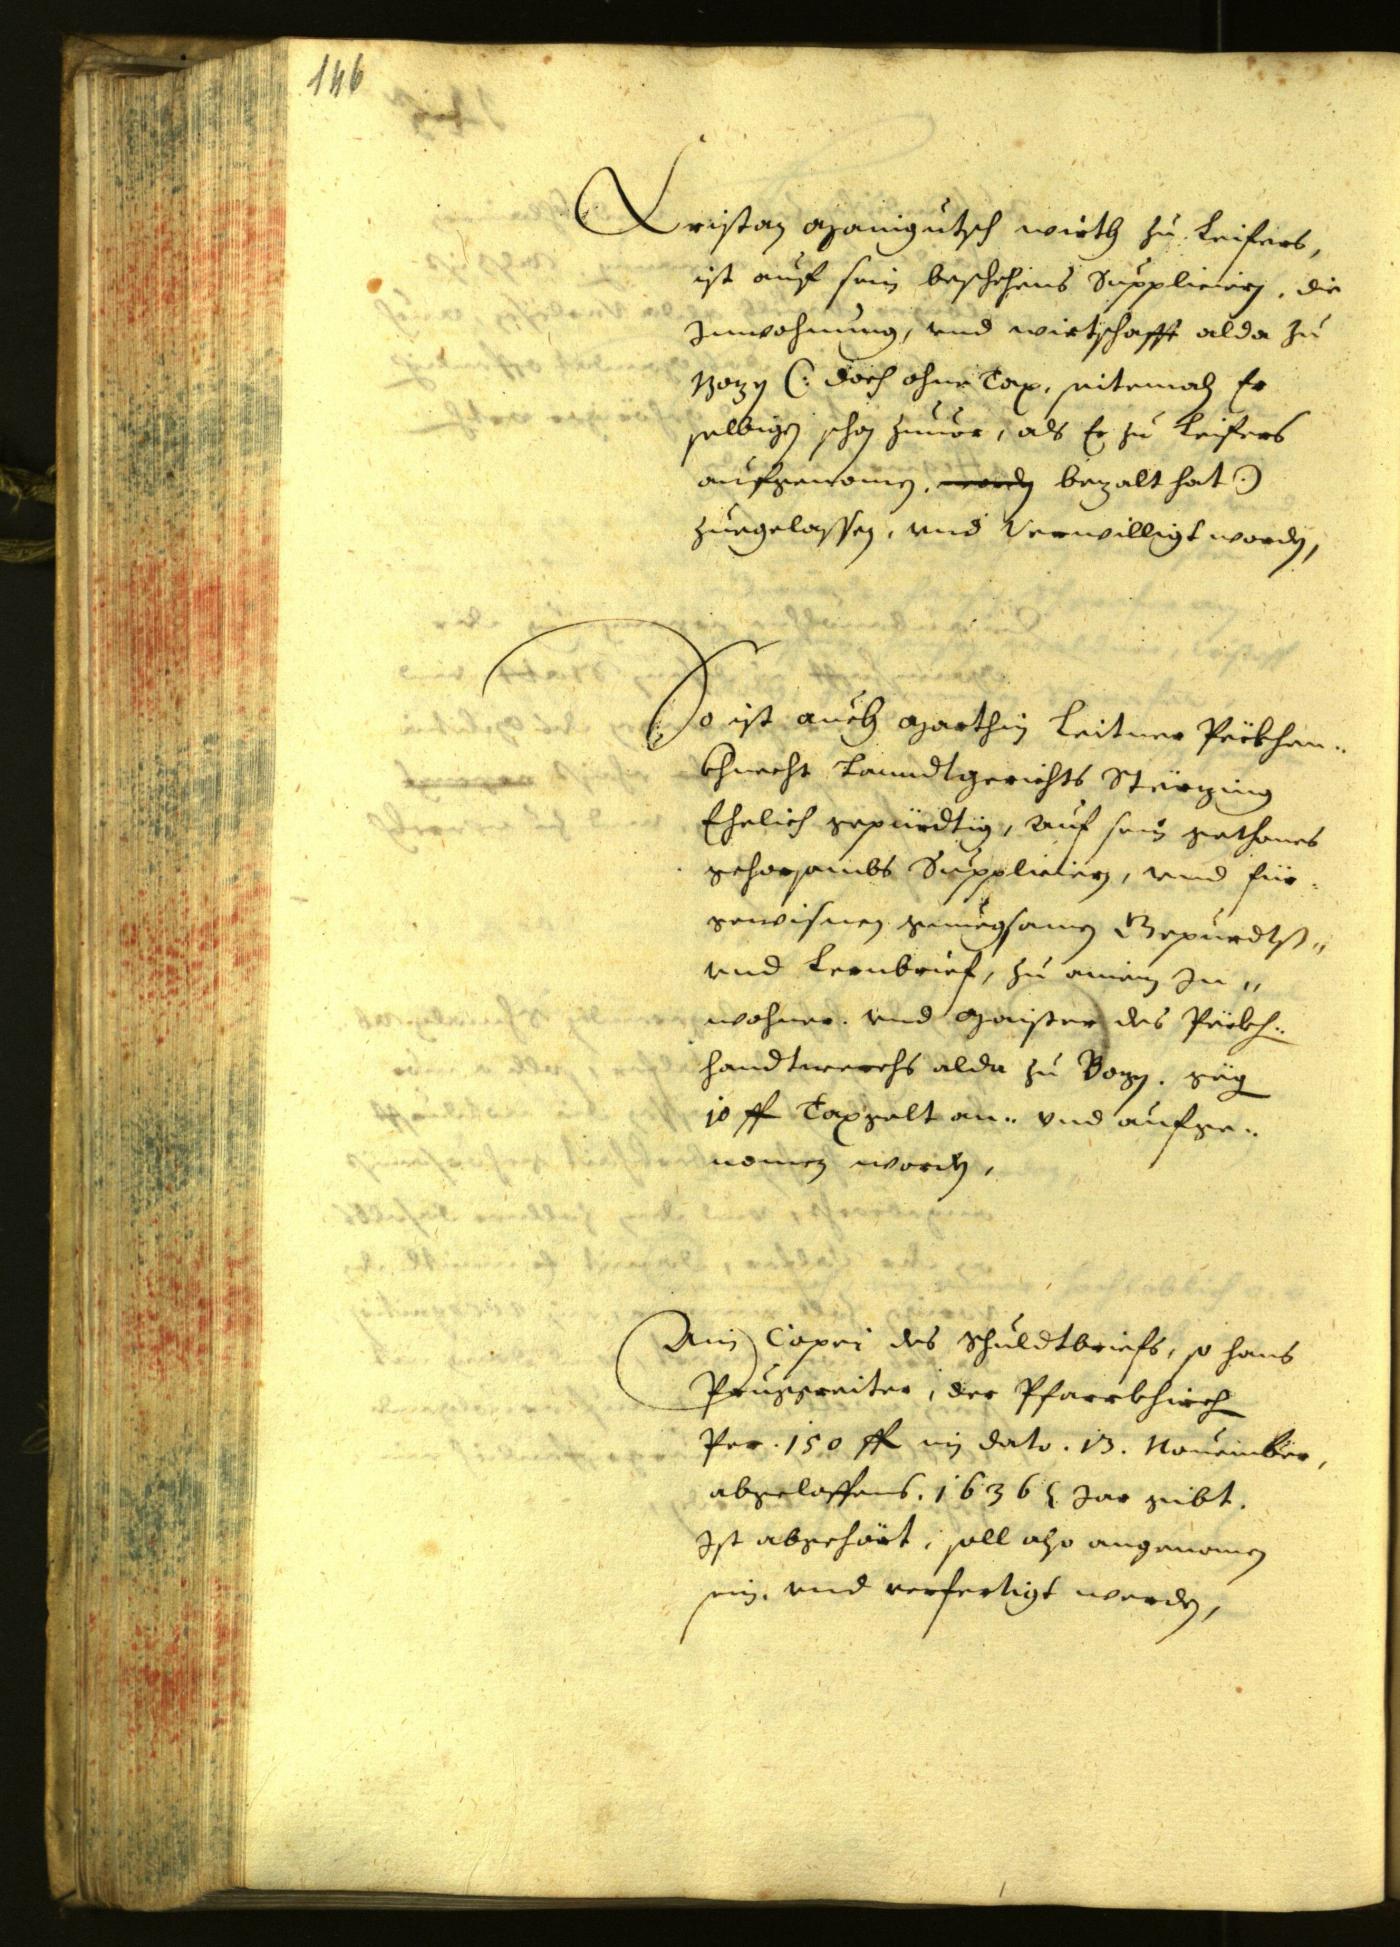 146
Cristan Manigutsch wirth zu Leifers,
ist auf sein beschehens Suppliciern, die
Inwohnung, vnd wirtschafft alda zu
Bozen (: doch ohne Tax, seitemaln Er
selbigen schon zuuor, als Er zu Leifers
aufgenomen, worden bezalt hat :)
zuegelassen, vnd verwilligt worden,
So ist auch Marthin Leitner Pökhen-
khnecht Lanndtgerichts Störzing
Ehelich gepürdtig, auf sein gethanes
gehorsambs Supplicieren, vnd für-
gewisnen genuegsamen Gepurdts-
vnd Lernbrief, zu ainem In-
wohner. vnd Maister des Pökh-
handtwerchs alda zu Bozen. gegen
10 ff Taxgelt an- vnd aufge-
nomen worden,
Ain Copei des Schuldtbriefs, so hans
Pruggreiter, der Pfarrkhirch
Per. 150 ff in dato. 13. Nouember,
abgeloffens. 1636 Jar gibt.
Ist abgehört, soll also angenomen
sein, vnd verfertigt werden,